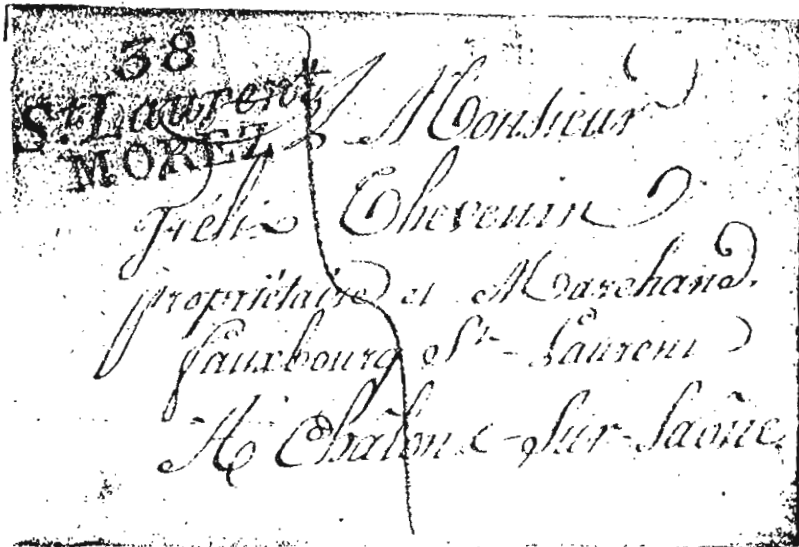 38
St. Laurent
MOREZ
A Monsieur
Félix Thevenin
propriétaire et Marchand
fauxbourg St- Laurent
A Châlons-sur-Saône.